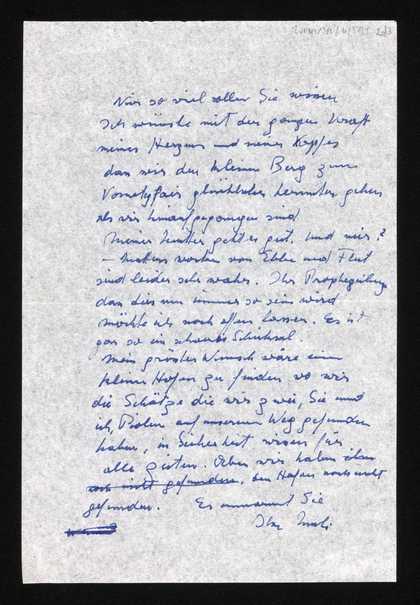 Nur so viel sollen Sie wissen
Ich wünsche mit der ganzen Kraft
meines Herzens und meines Kopfes
dass wir den kleinen Berg zum
glücklicher herunter gehen
als wir hinaufgegangen sind
Meiner Mutter geht es gut. Und mir?
– worte von Ebbe und Flut
sind leider sehr wahr. Ihre Prophezeiung
dass dies nun immer so sein wird
möchte ich noch offen lassen. Es ist
gar so ein schweres Schicksal.
Mein grösster Wunsch wäre einen
kleinen Hafen zu finden wo wir
die Schätze die wir zwei, Sie und
ich, auf unserem Weg gefunden
haben, in Sicherheit wissen für
alle Zeiten. Aber wir haben ihn
noch nicht gefunden, den Hafen noch nicht
gefunden. Es umarmt Sie
Ihr